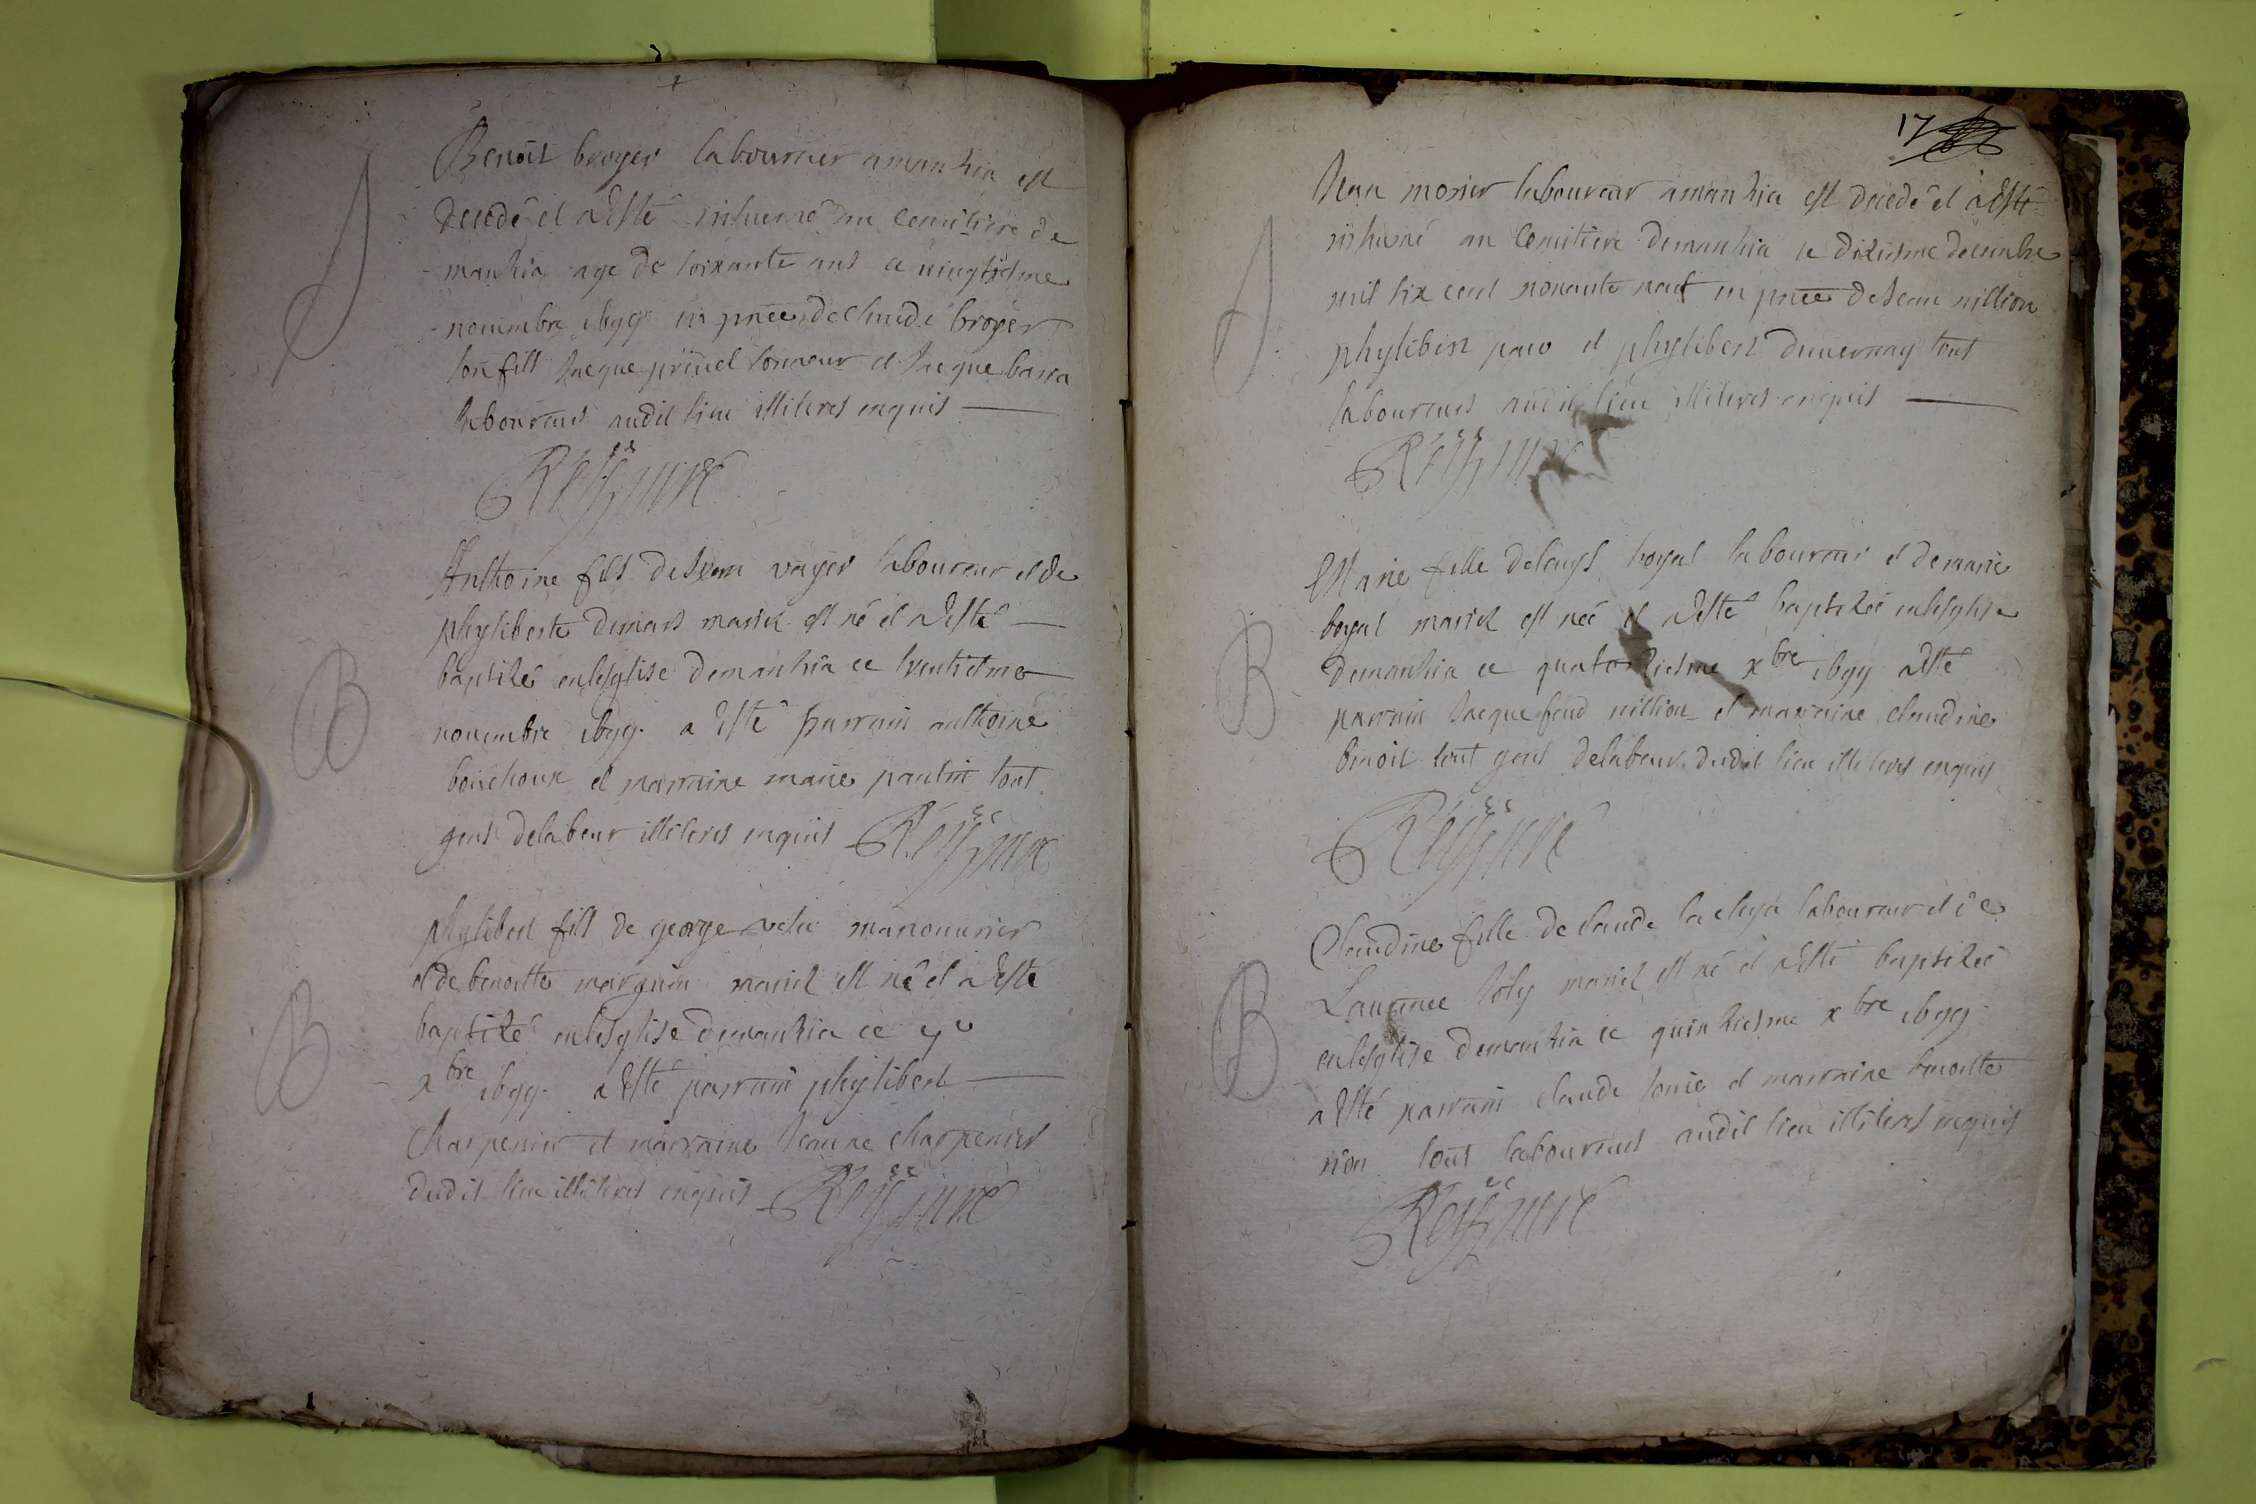 Benoit broyer laboureur a manzia est
decedé et a Esté inhumé au cemitiere de
manzia age de soixante ans ce vingtiesme
novembre 1699 en pnce de claude broyer
son fils Jacque tonneur et Jacque barra
laboureurs audit lieu illiteres enquis
Rey curé
Anthoine fils de Jean voyer laboureur et de
phyliberte demars mariez est né et a Esté
baptizé en lesglise de manzia ce trentiesme
novembre 1699 a Esté parrain anthoine
bouchoux et marraine marie paulin tout
gens delabeur illiteres enquis Rey curé
phylibert fils de george velu manouvrier
et de benoitte marguin mariez est né et a Esté
baptizé en lesglise de manzia ce
xbre 1699 a Esté parrain phylibert
Charpenier et marraine Jeanne charpenier
dudit lieu illiteres enquis Rey curé
17
Jean morier laboureur a manzia est decedé et a Esté
inhumé au cemitiere de manzia le dixiesme decembre
mil six cent nonante neuf en pnce de Jean nillion
phylibert et phylibert duvernay tout
laboureurs audit lieu illiteres enquis
Rey curé
Marie fille de louys boyat laboureur et de marie
boyat mariez est née et a Esté baptizée en lesglise
de manzia ce quatorziesme xbre 1699 a Esté
parrain Jacque nillion et marraine claudine
benoit tout gens delabeur dudit lieu illiteres enquis
Rey curé
Claudine fille de claude laboureur et de
Laurence Joly mariez est né et a Esté baptizée
en lesglise de manzia ce quinziesme xbre 1699
a Esté parrain claude et marraine benoitte
tout laboureurs audit lieu illiteres enquis
Rey curé